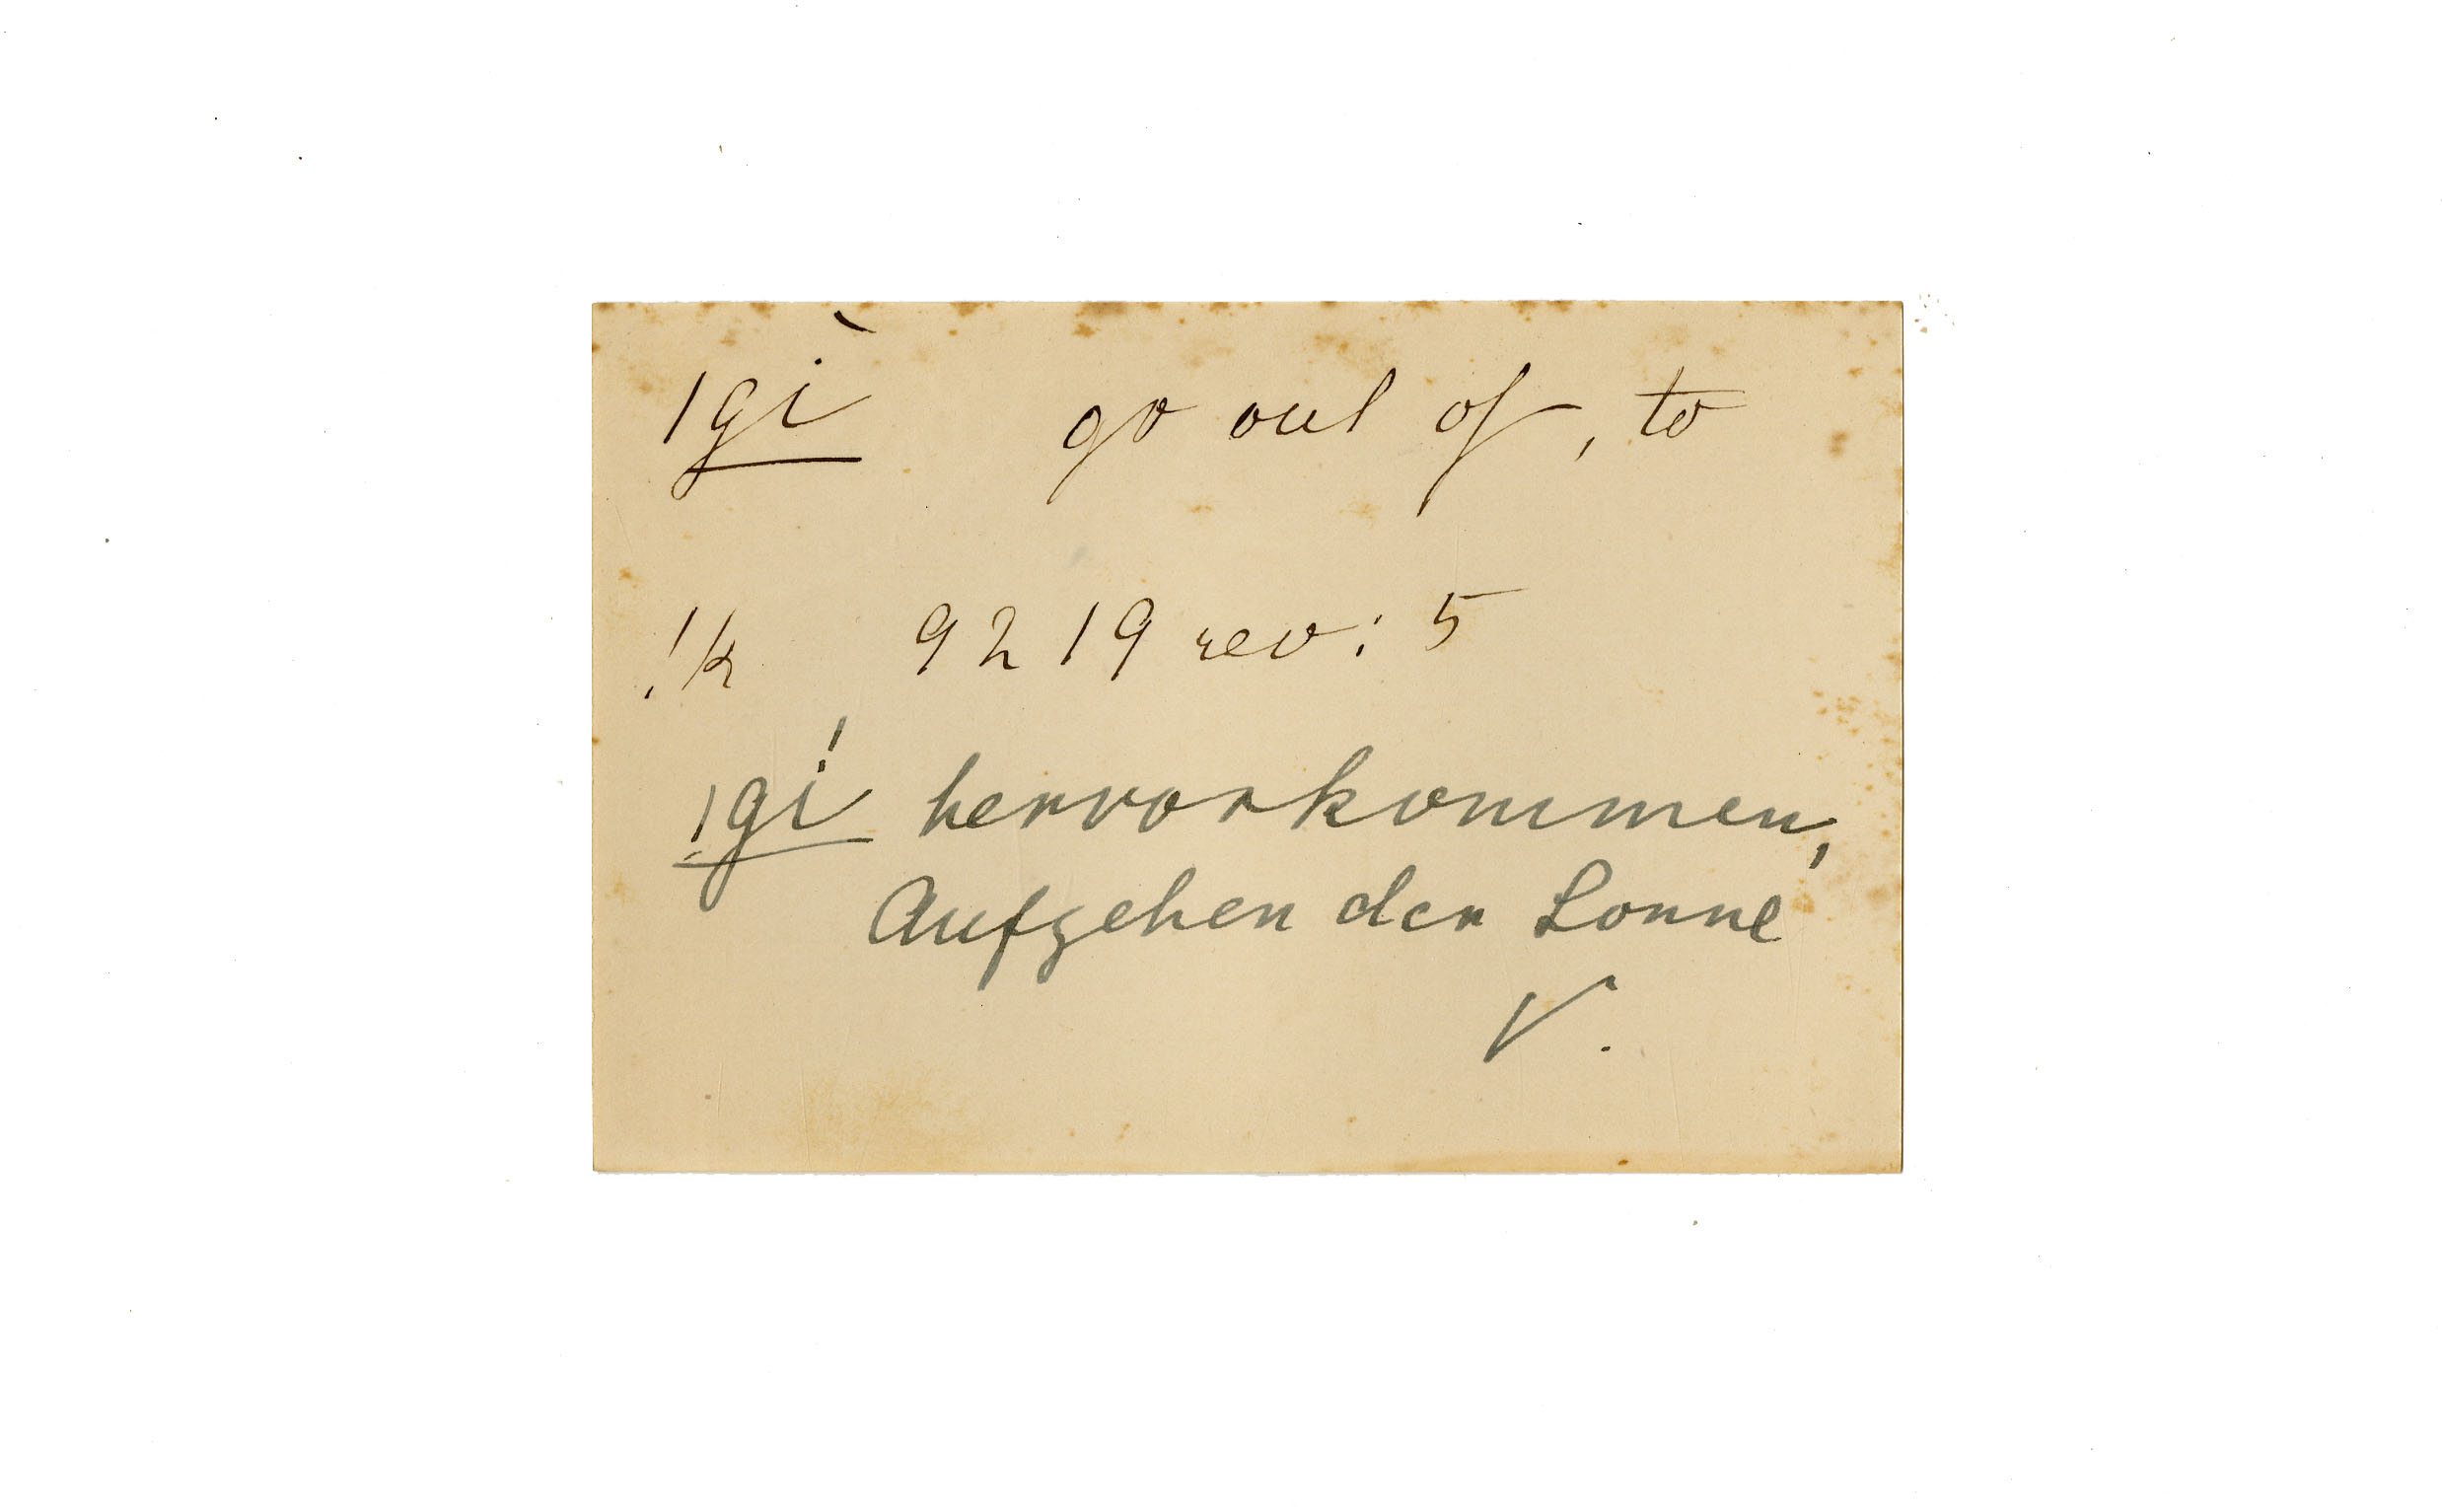 ǀgì go out of, to
!k 9219 rev: 5
ǀgí hervorkommen,
Aufgehen der Sonne
V.